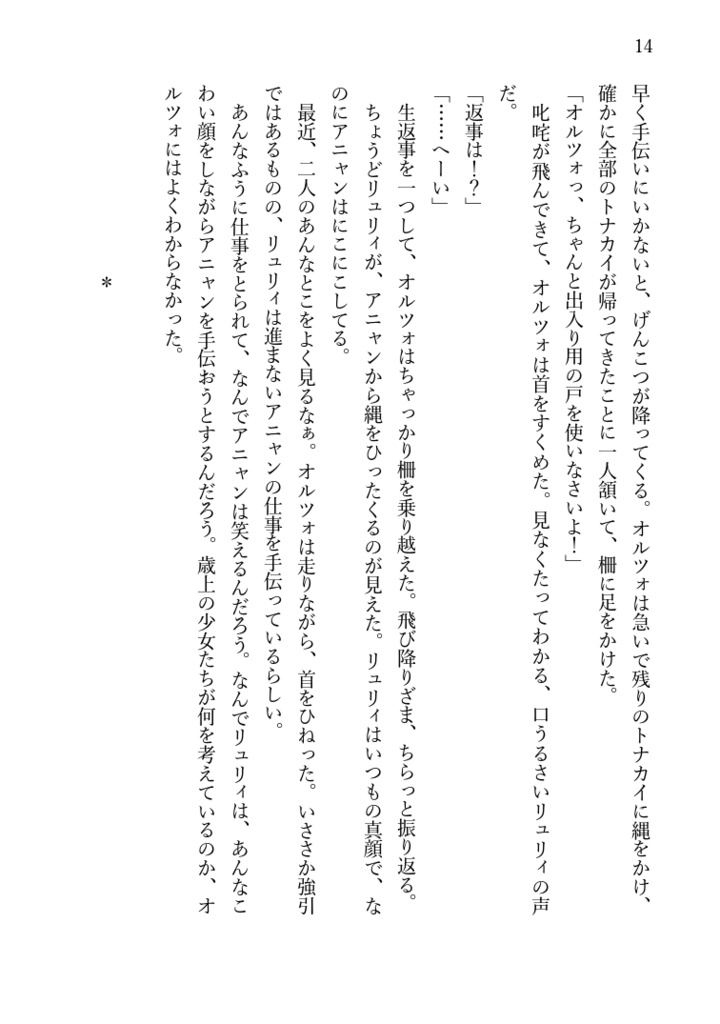 14
早く手伝いにいかないと、げんこつが降ってくる。オルツォは急いで残りのトナカイに縄をかけ、
確かに全部のトナカイが帰ってきたことに一人頷いて、柵に足をかけた。
「オルツォっ、ちゃんと出入り用の戸を使いなさいよ！」
叱咤が飛んできて、オルツォは首をすくめた。見なくたってわかる、口うるさいリュリィの声
だ。
「返事は！？」
「……へーい」
生返事を一つして、オルツォはちゃっかり柵を乗り越えた。飛び降りざま、ちらっと振り返る。
ちょうどリュリィが、アニャンから縄をひったくるのが見えた。リュリィはいつもの真顔で、な
のにアニャンはにこにこしてる。
最近、二人のあんなとこをよく見るなぁ。オルツォは走りながら、首をひねった。いささか強引
ではあるものの、リュリィは進まないアニャンの仕事を手伝っているらしい。
あんなふうに仕事をとられて、なんでアニャンは笑えるんだろう。なんでリュリィは、あんなこ
わい顔をしながらアニャンを手伝おうとするんだろう。歳上の少女たちが何を考えているのか、オ
ルツォにはよくわからなかった。
＊